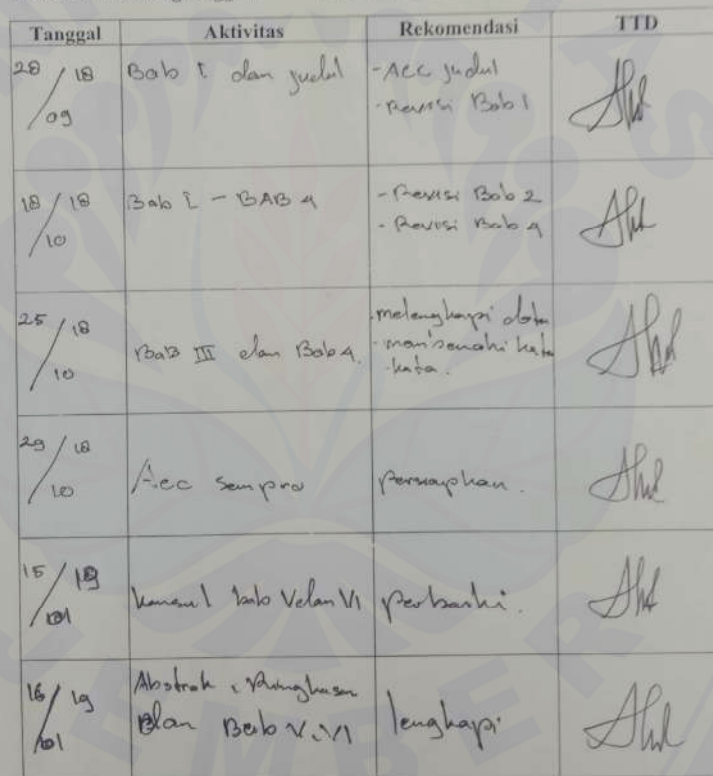 Tanggal Aktivitas Rekomendasi TTD
28/18/09 Bab I dan judul - Acc judul
- Revisi Bab 1
18/18/10 Bab I - BAB 4 - Revisi Bab 2
- Revisi Bab 4
25/18/10 BaB III dan Bab 4. - melengkapi data
- kata.
29/18/10 Acc sempro persiapkan.
15/19/01 konsul bab V dan VI perbaiki.
16/19/01 Abstrak, Ringkasan
dan Bab V. VI lengkapi
JEMBER